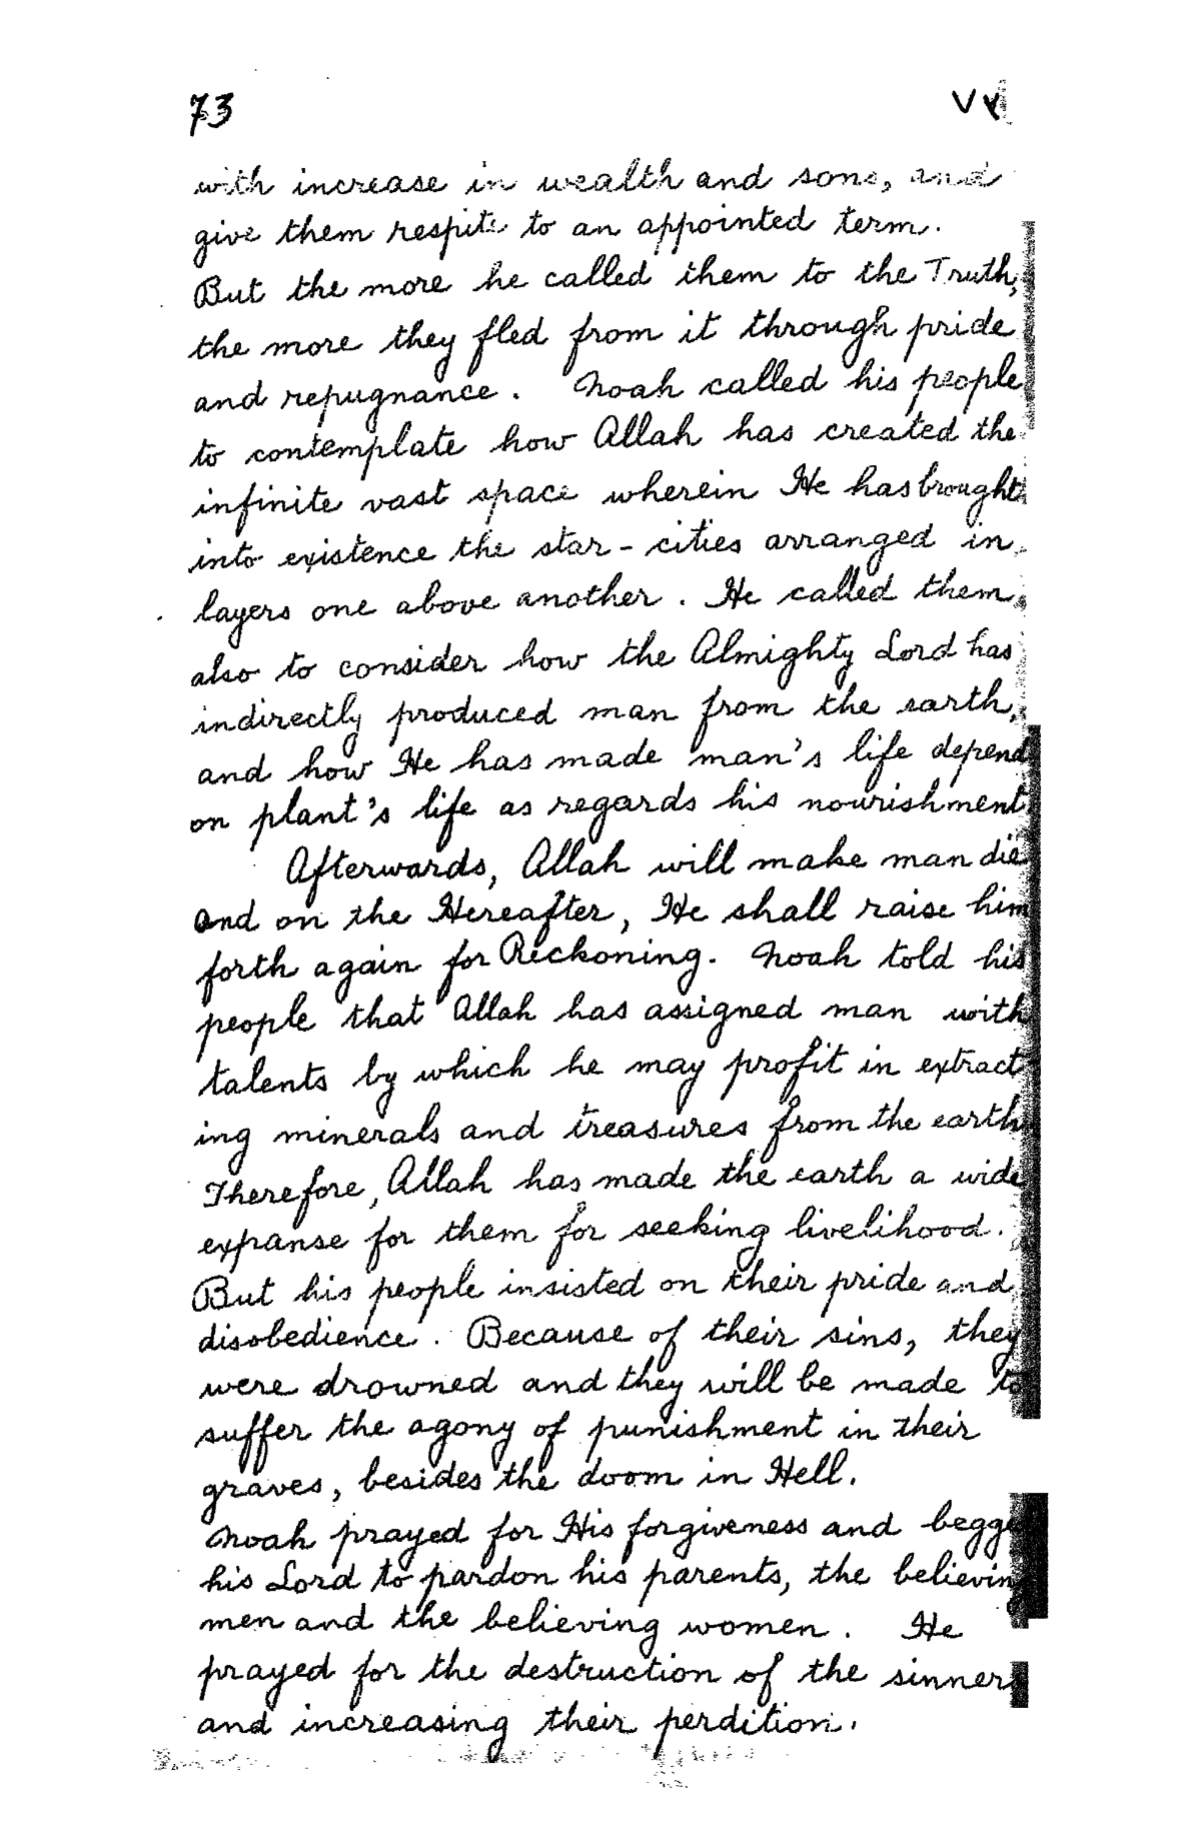 73 ٧٣
with increase in wealth and sons, and
give them respite to an appointed term.
But the more he called them to the Truth,
the more they fled from it through pride
and repugnance. Noah called his people
to contemplate how Allah has created the
infinite vast space wherein He has brought
into existence the star-cities arranged in
layers one above another. He called them
also to consider how the Almighty Lord has
indirectly produced man from the earth,
and how He has made man's life depend
on plant's life as regards his nourishment
Afterwards, Allah will make man die
and on the Hereafter, He shall raise him
forth again for Reckoning. Noah told his
people that Allah has assigned man with
talents by which he may profit in extract
ing minerals and treasures from the earth
Therefore, Allah has made the earth a wide
expanse for them for seeking livelihood.
But his people insisted on their pride and
disobedience. Because of their sins, they
were drowned and they will be made to
suffer the agony of punishment in their
graves, besides the doom in Hell.
Noah prayed for His forgiveness and begge
his Lord to pardon his parents, the believing
men and the believing women. He
prayed for the destruction of the sinners
and increasing their perdition.